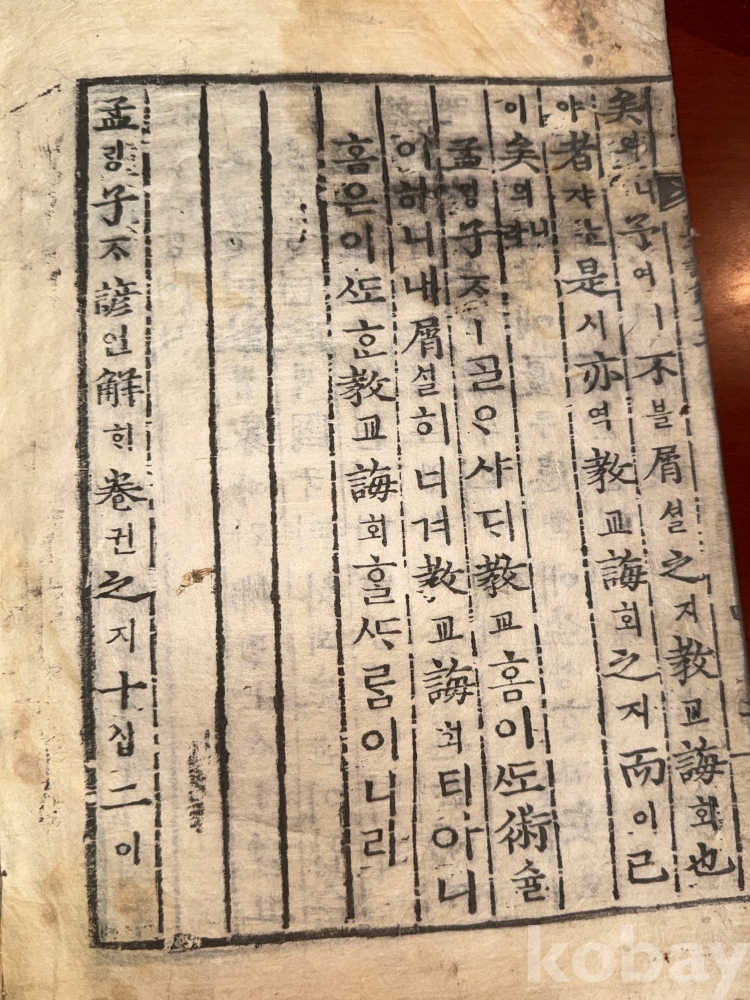 矣의니予여ㅣ不블屑셜之지教교誨회也
야者쟈ᄂᆞᆫ是시亦역教교誨회之지而이已
이矣의니라
孟ᄆᆡᆼ子ᄌᆞㅣᄀᆞᆯᄋᆞ샤ᄃᆡ教교홈이ᄯᅩ術슐
이하니내屑셜히너겨教교誨회티아니
홈은이ᄯᅩᄒᆞᆫ教교誨회ᄒᆞᆯᄯᆞᄅᆞᆷ이니라
孟ᄆᆡᆼ子ᄌᆞ諺언解ᄒᆡ卷권之지十십二이
kobay